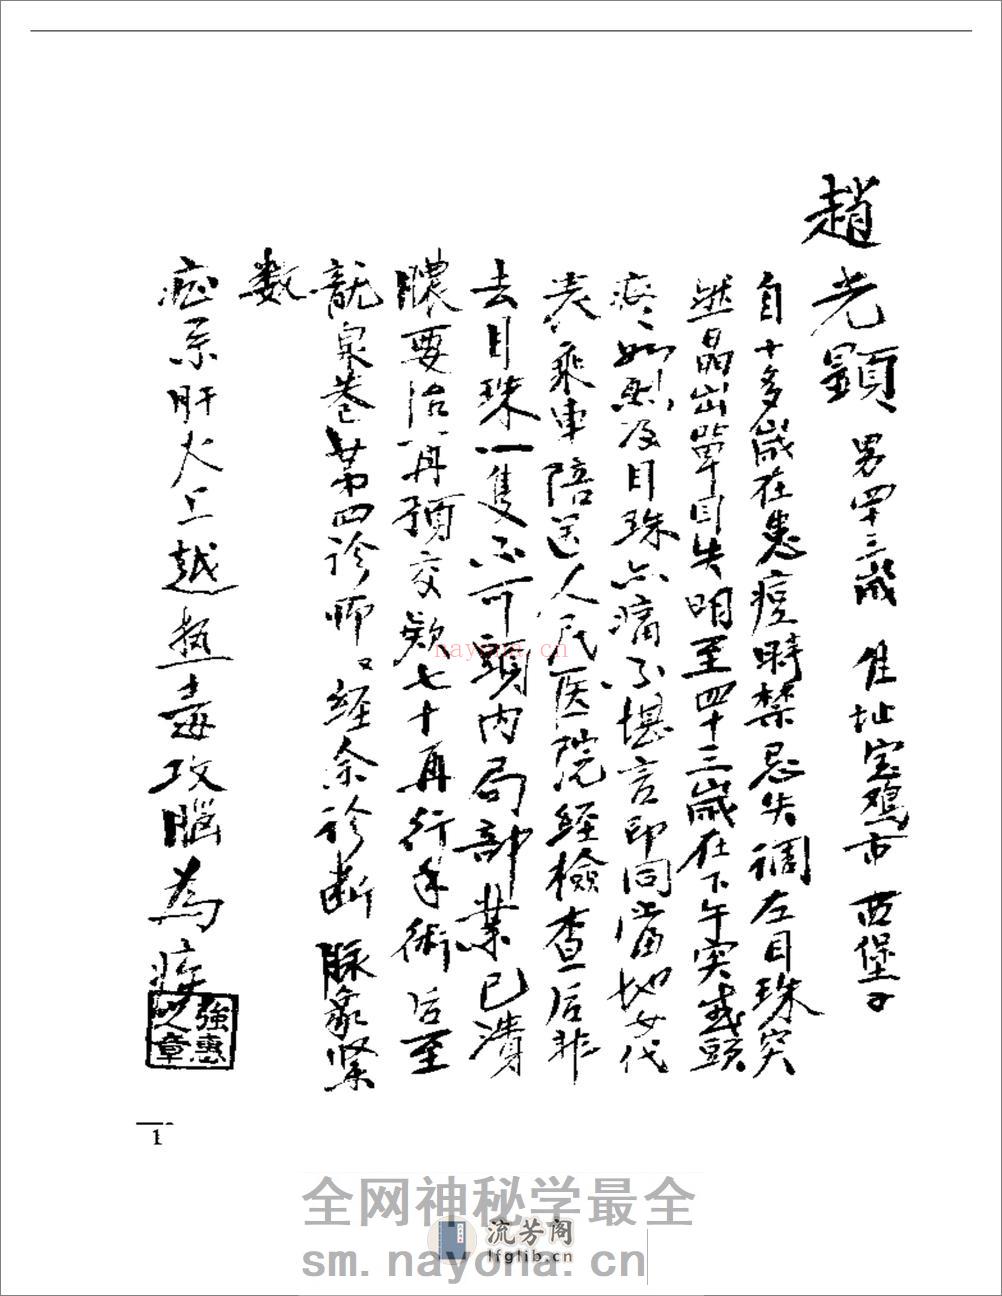 趙光顕 男四十三歲 住址宝鸡市西堡子
自十多歲在患痘時禁忌失調左目珠突
然晶出單目失明至四十三歲在下午突感頭
疼如裂及目珠亦痛不堪言即同當地女代
表乘車陪送人民医院経檢查后非
去目珠一隻不可頭内局部業已潰
膿要治再預交款七十再行手術后至
龍泉巷第四診所又経余診断 脉象緊
数
症系肝火上越热毒攻腦為疾
強惠
之章
1
nayona.cn
全网神秘学最全
流芳阁
lfglib.cn
sm.nayona.cn